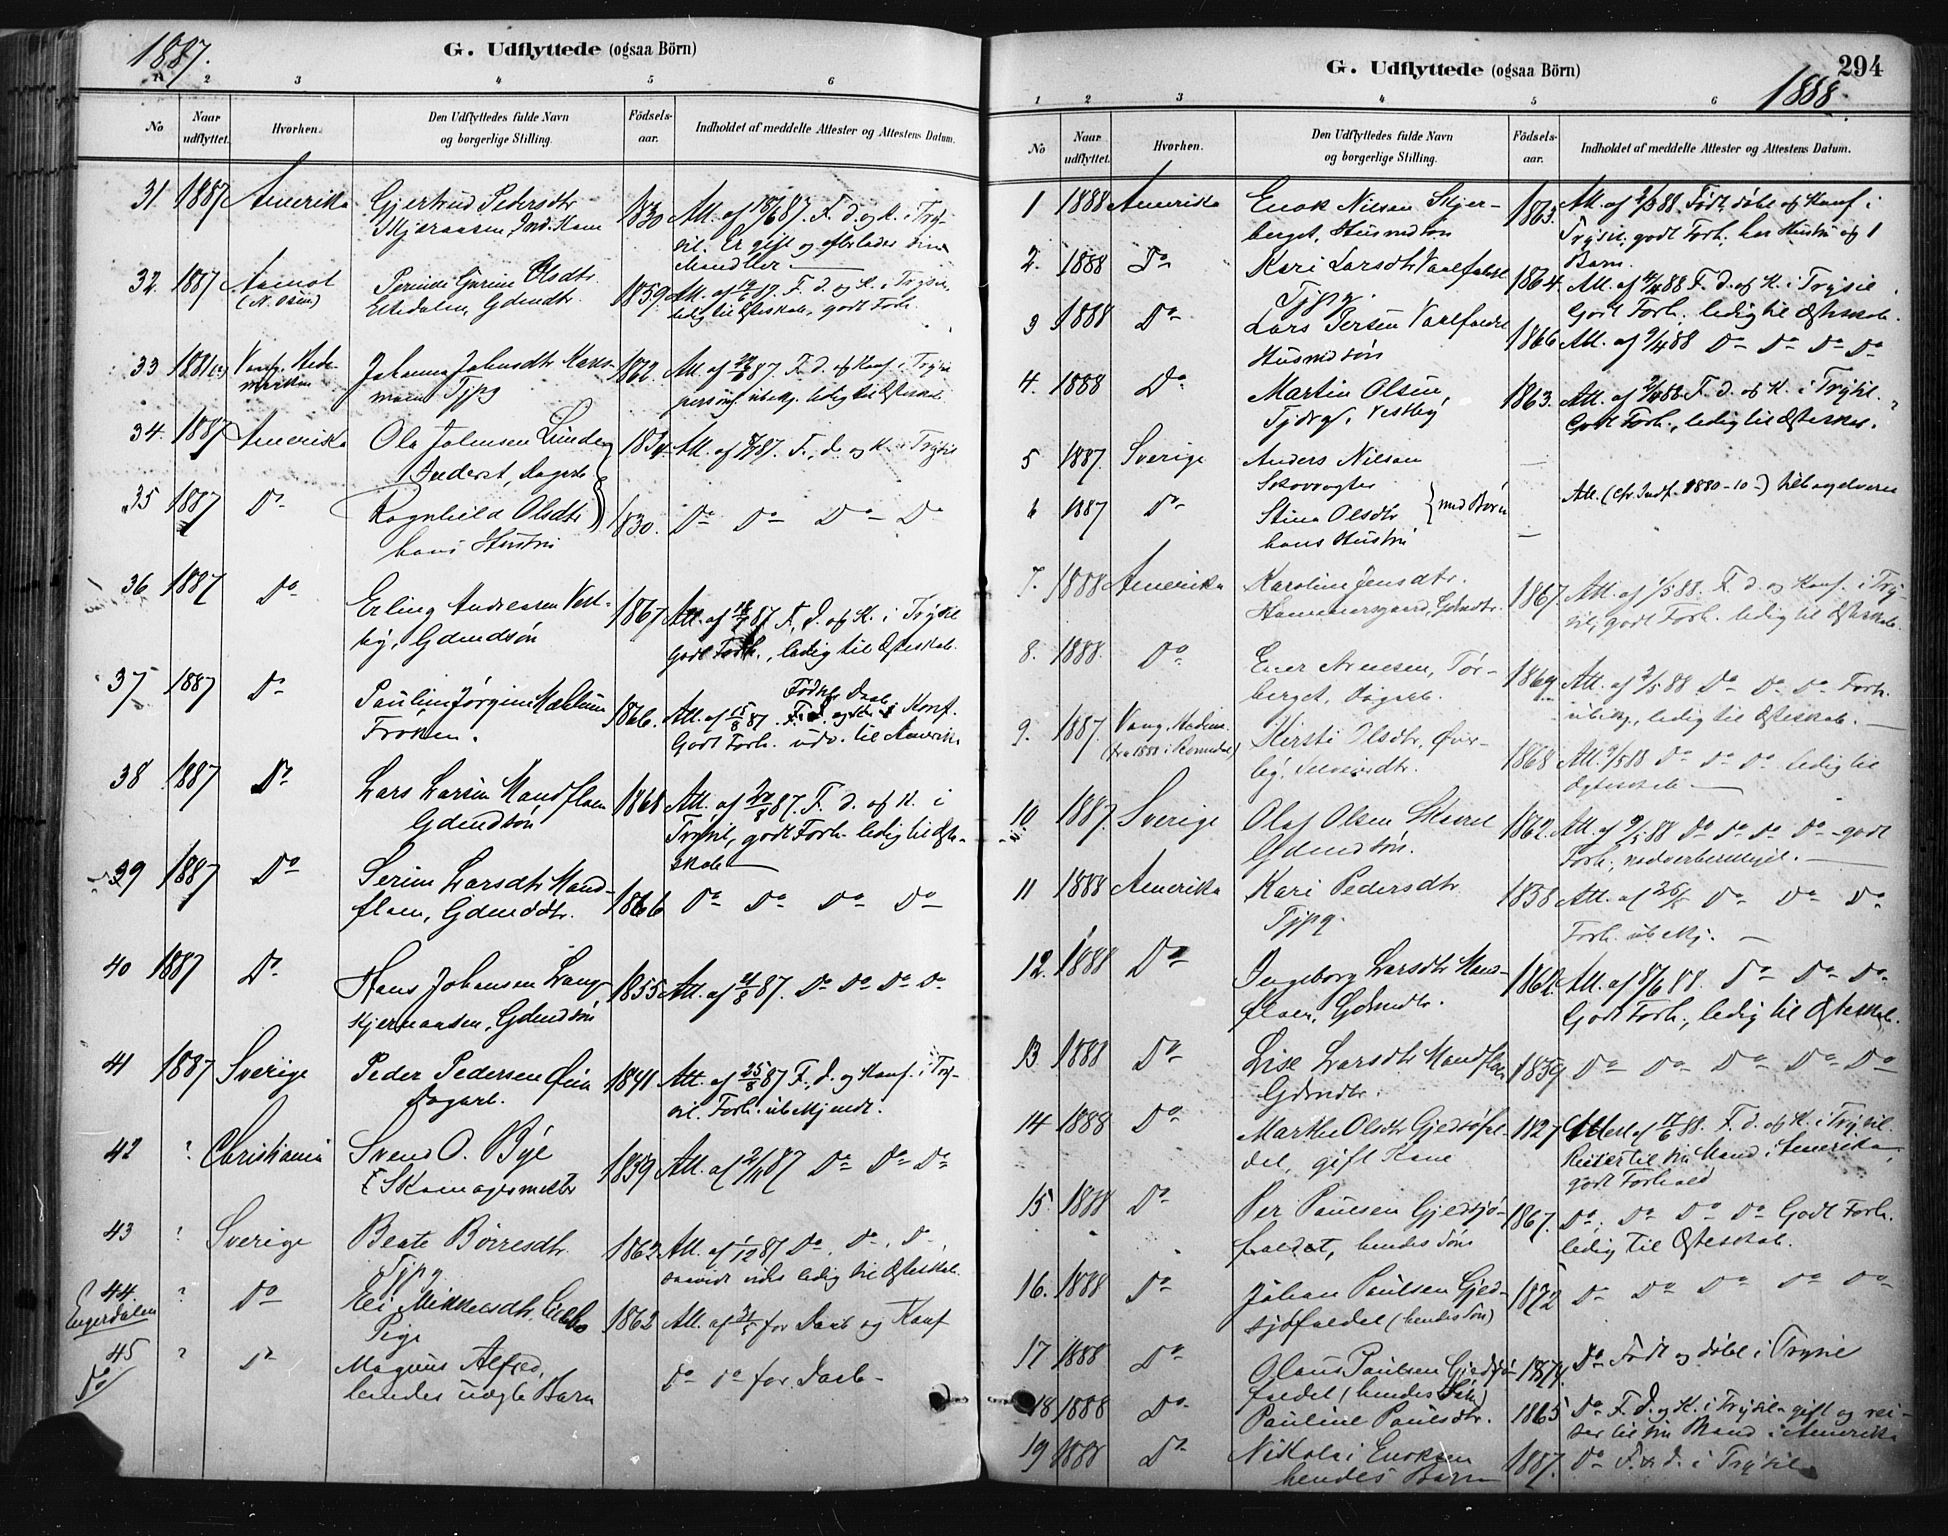 1887.
G. Udflyttede (ogsaa Börn)
1 2 3 4 5 6
No
Naar udflyttet.
Hvorhen.
Den Udflyttedes fulde Navn og borgerlige Stilling.
Födsels-aar.
Indholdet af meddelte Attester og Attestens Datum.
31 1887 Amerika Gjertrud Pedersdtr 1830 Att. af 87. F. d. og K. i Try-
sil. Er gift og efterlader sin
Mand her
32. 1887 Aamot Olsdtr 1859. Att. af 87. F. d. og K. i Trysil,
(N. Osen) Gdmdtr. ledig til Ægteskab, godt Forh.
33 Vang, Hede- Johanne Johnsdtr 1862. Att. af 87. F. d. og Konf. i Trysil
marken Tjpg ubekj. ledig til Ægteskab
34. 1887 Amerika Ola Johnsen Lunde 1834 Att. af 87. F., d. og K. i Trysil
Dagarb.
35 1887 Do Ragnhild Olsdtr 1830. Do Do Do Do
hans Hustru
36 1887 Do Erling Andreasen Vest- 1867 Att. af 87 F. d. og K. i Trysil
by, Gdmdsön godt Forh., ledig til Ægteskab.
37 1887 Do Pauline Jörgine 1866. Att. af 15/8 87. Födsel, Daab, Konf.
Fröken. Godt Forh. udv. til Amerika
38 1887 Do Lars Larsen Mandfloen 1868 Att. af 20/8 87. F. d. og K. i
Gdmdsön Trysil, godt Forh. ledig til Ægte-
skab
39 1887 Do Serine Larsdtr Mand- 1866 Do Do Do Do
floen, Gdmddtr.
40 1887 Do Hans Johansen Lang- 1855 Att. af 87. Do Do Do Do
Gdmdsön
41 1887 Sverige Peder Pedersen 1841 Att. af 25/8 87 F., d. og Konf. i Try-
Dagarb. sil. Forh. ubekjendt.
42 " Christiania Svend O. Bye 1859 Att. af 2/11 87 Do Do Do
Skomagermester
43 " Sverige Beate Börresdtr 1862 Att. af 1/12 87 Do. Do. Do
Tjpg saavidt vides ledig til Ægteskab.
44. " Do Mikkelsdtr 1862 Att. af for Daab og Konf
Engerdalen Pige
45 " Do Magnus Alfred, Do Do for Daab
Do hendes uægte Barn
G. Udflyttede (ogsaa Börn)
294
1888.
1 2 3 4 5 6
No
Naar udflyttet.
Hvorhen.
Den Udflyttedes fulde Navn og borgerlige Stilling.
Födsels-aar.
Indholdet af meddelte Attester og Attestens Datum.
1 1888 Amerika Enok Nilsen Skjer- 1863. Att. af 88. Födt, döbt og Konf i
berget, Husmdsön Trysil, godt Forh. har Hustru og 1
Barn.
2. 1888 Do Kari Larsdtr 1864. Att. af 88 F. d. og K. i Trysil
Tjpg. Godt Forh. ledig til Ægteskab.
3 1888 Do Lars Persen 1866 Att. af 9/4 88 Do Do Do Do
Husmdsön
4. 1888 Do Martin Olsen, 1863. Att. af 88 F. d. og K. i Trysil.
Vestby Godt Forh., ledig til Ægteskab.
5 1887. Sverige Anders Nilsen —
Skovvogter Att. (cfr. Indf. 1880-10-) tilbageleveret
6 1887 Do Stina Olsdtr } med Börn
hans Hustru —
7. 1888 Amerika Karoline Jensdtr. 1867. Att. af 88. F. d. og Konf. i Try-
Gdmdtr. sil, godt Forh. ledig til Ægteskab.
8. 1888. Do Arnesen, Tör- 1869. Att. af 2/5 88 Do Do Do Forh.
berget, Dagarb. ubekj., ledig til Ægteskab.
9. 1887. Vang, Hedem. Kirsti Olsdtr, Över- 1868 Att. 88 Do Do Do ledig til
by, Ægteskab
10. 1887. Sverige Olaf Olsen 1862. Att. af 88 Do Do Do Do godt
Gdmdsön. Forh.,
11 1888 Amerika Kari Pedersdtr 1838 Att. af Do Do Do
Tjpg. Forh. ubekj.
12. 1888 Do Ingeborg Larsdtr Mand- 1862. Att. af 8/6 88. Do Do Do
floen, Gdmdtr. Godt Forh., ledig til Ægteskab.
13. 1888 Do Lise Larsdtr Mandfloen 1859 Do Do Do Do Do
Gdmdtr.
14 1888 Do Marthe Olsdtr Gjedsjöfal- 1827 Attest af 88. F. d. og K. i Trysil.
det, gift Kone Reiser til sin Mand i Amerika,
godt Forhold
15. 1888 Do Per Paulsen Gjedsjö- 1867. Do; Do Do Do Godt Forh.
faldet, hendes Sön ledig til Ægteskab.
16. 1888 Do Johan Paulsen Gjed- 1872 Do Do Do Do Do
sjöfaldet (hendes Sön)
17 1888 Do Olaus Paulsen Gjedsjö- 1874. Do Födt og döbt i Trysil
faldet (hendes Sön)
18 1888 Do Pauline Paulsdtr. 1865 Do F. d. og K. i Trysil gift og rei-
ser til sin Mand i Amerika
19 1888 Do Nikolai Enoksen 1887. Do F. & d. i Trysil
hendes Barn